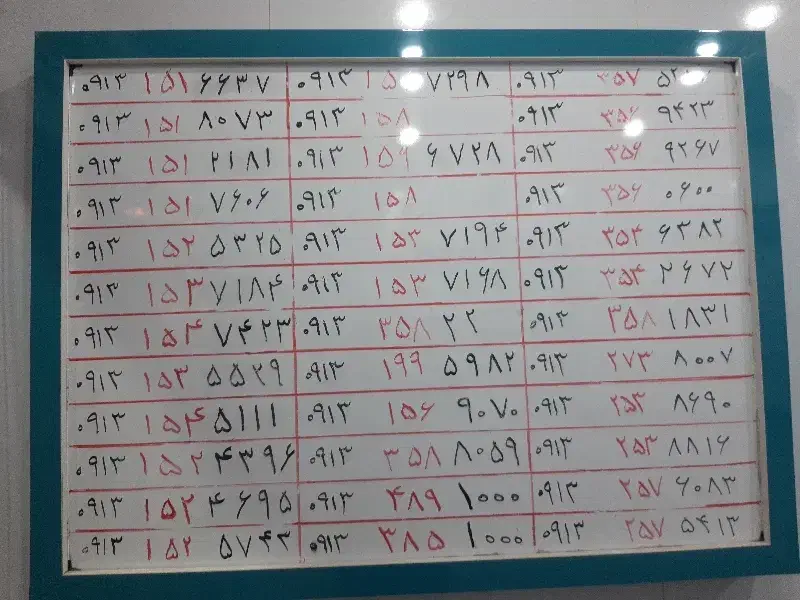 ۰۹۱۳ ۱۵۱ ۶۶۳۷ ۰۹۱۳ ۷۲۹۸ ۰۹۱۳ ۳۵۷
۰۹۱۳ ۱۵۱ ۸۰۷۳ ۰۹۱۳ ۱۵۸ ۰۹۱۳ ۳۵۶ ۹۴۲۳
۰۹۱۳ ۱۵۱ ۲۱۸۱ ۰۹۱۳ ۱۵۹ ۶۷۲۸ ۰۹۱۳ ۳۵۶ ۹۲۶۷
۰۹۱۳ ۱۵۱ ۷۶۰۶ ۰۹۱۳ ۱۵۸ ۰۹۱۳ ۳۵۶ ۰۶۰۰
۰۹۱۳ ۱۵۲ ۵۳۲۵ ۰۹۱۳ ۱۵۳ ۷۱۹۴ ۰۹۱۳ ۳۵۴ ۶۳۸۲
۰۹۱۳ ۱۵۳ ۷۱۸۴ ۰۹۱۳ ۱۵۳ ۷۱۶۸ ۰۹۱۳ ۳۵۴ ۲۶۷۲
۰۹۱۳ ۱۵۴ ۷۴۲۳ ۰۹۱۳ ۳۵۸ ۲۲ ۰۹۱۳ ۳۵۸ ۱۸۳۱
۰۹۱۳ ۱۵۳ ۵۵۲۹ ۰۹۱۳ ۱۹۹ ۵۹۸۲ ۰۹۱۳ ۲۷۳ ۸۰۰۷
۰۹۱۳ ۱۵۴ ۵۱۱۱ ۰۹۱۳ ۱۵۶ ۹۰۷۰ ۰۹۱۳ ۲۵۳ ۸۶۹۰
۰۹۱۳ ۱۵۲ ۴۳۹۶ ۰۹۱۳ ۳۵۸ ۸۰۵۹ ۰۹۱۳ ۲۵۳ ۸۸۱۶
۰۹۱۳ ۱۵۲ ۴۶۹۵ ۰۹۱۳ ۴۸۹ ۱۰۰۰ ۰۹۱۳ ۲۵۷ ۶۰۸۳
۰۹۱۳ ۱۵۲ ۵۷۴۳ ۰۹۱۳ ۳۸۵ ۱۰۰۰ ۰۹۱۳ ۲۵۷ ۵۴۱۳